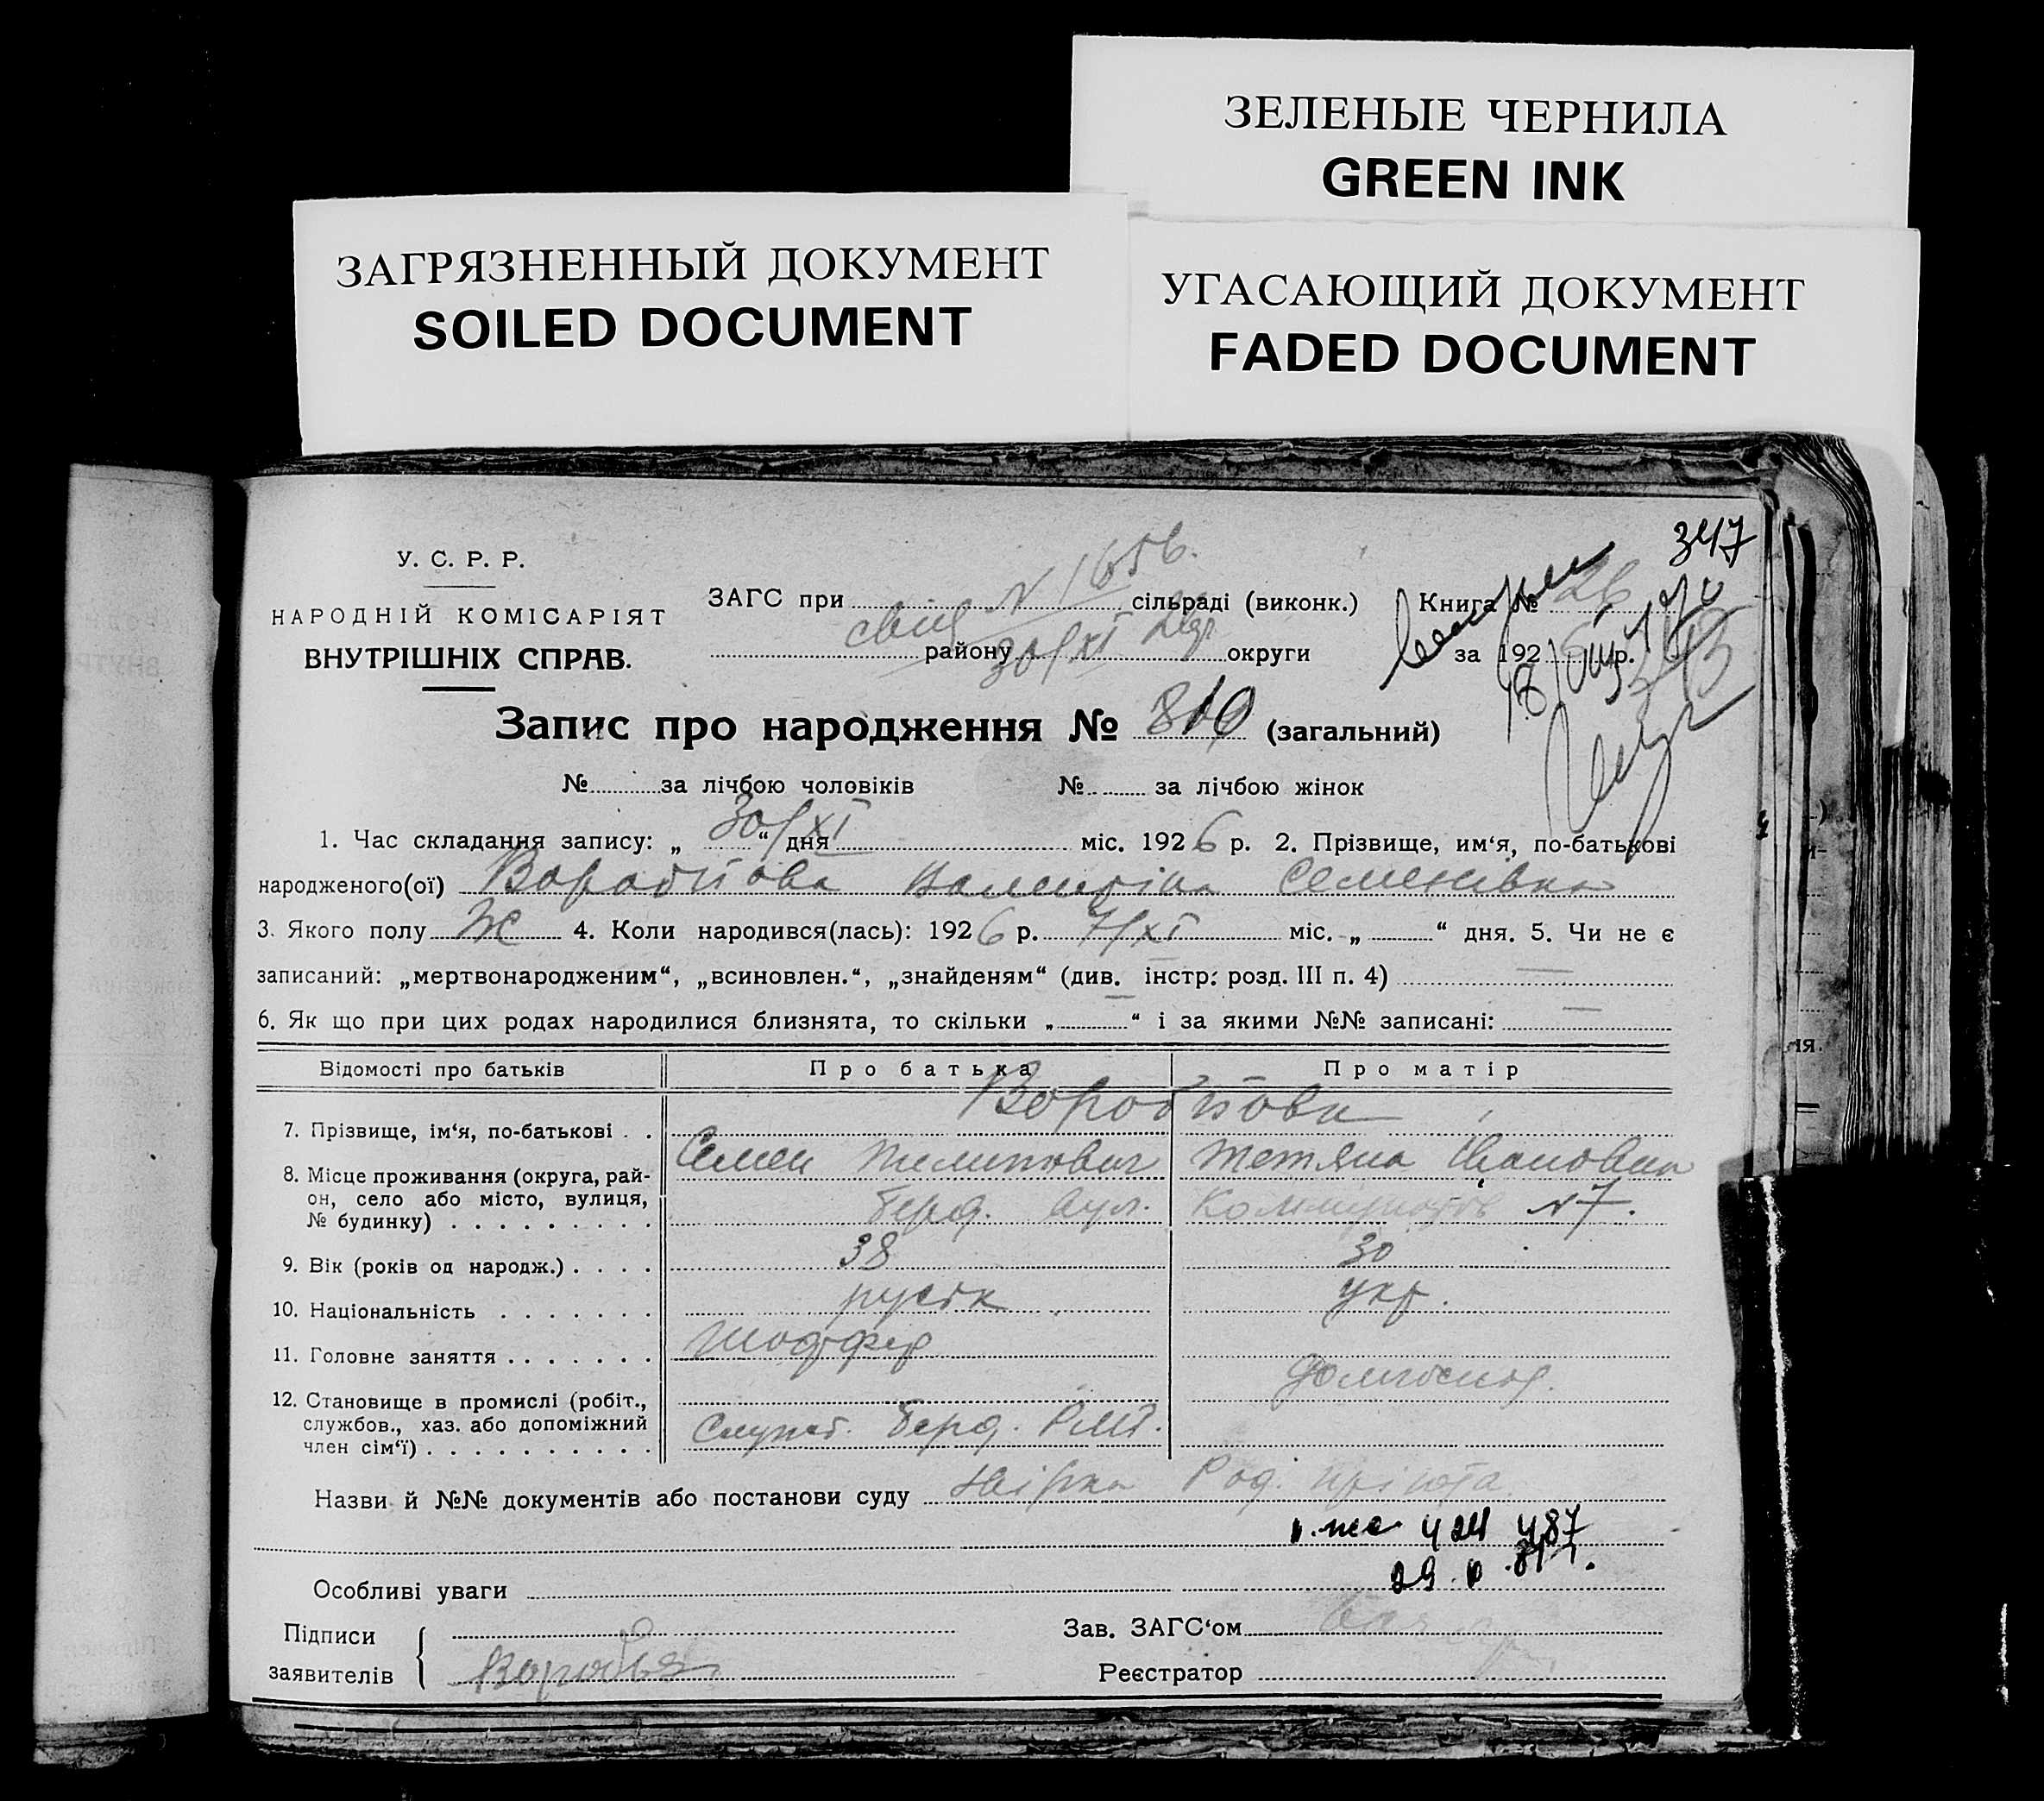 ЗЕЛЕНЫЕ ЧЕРНИЛА
GREEN INK
ЗАГРЯЗНЕННЫЙ ДОКУМЕНТ
SOILED DOCUMENT
УГАСАЮЩИЙ ДОКУМЕНТ
FADED DOCUMENT
347
У. С. Р. Р.
НАРОДНІЙ КОМІСАРІЯТ
ВНУТРІШНІХ СПРАВ.
N 1656.
ЗАГС при сільраді (виконк.) Книга № 26
району 30/XI округи за 1926 р.
Запис про народження № 810 (загальний)
№ за лічбою чоловіків № за лічбою жінок
1. Час складання запису: „ 30/XI “ дня міс. 1926 р. 2. Прізвище, им‘я, по-батькові
народженого(ої) Воробйова Валентіна Семенівна
3. Якого полу Ж 4. Коли народився(лась): 1926 р. 7/XI міс. „ “ дня. 5. Чи не є
записаний: „мертвонародженим“, „всиновлен.“, „знайденям“ (див. інстр: розд. III п. 4) —
6. Як що при цих родах народилися близнята, то скільки „ “ і за якими №№ записані: —
Відомості про батьків Про батька Про матір
Воробйови
7. Прізвище, ім‘я, по-батькові . .
Семен Пилипович Тетяна Івановна
8. Місце проживання (округа, рай-
он, село або місто, вулиця,
№ будинку) . . . . . . . . . Берд. вул. Коммунарів N 7.
9. Вік (років од народж.) . . . . 38 30
10. Національність . . . . . . . руськ укр.
11. Головне заняття . . . . . . . Шоффер
домгоспод.
12. Становище в промислі (робіт.,
службов., хаз. або допоміжний
член сім‘ї) . . . . . . . . . . Служб. Берд.
Назви й №№ документів або постанови суду Род. пріюта
424 487
Особливі уваги
Підписи
заявителів Воробьев
Зав. ЗАГС‘ом
Реєстратор